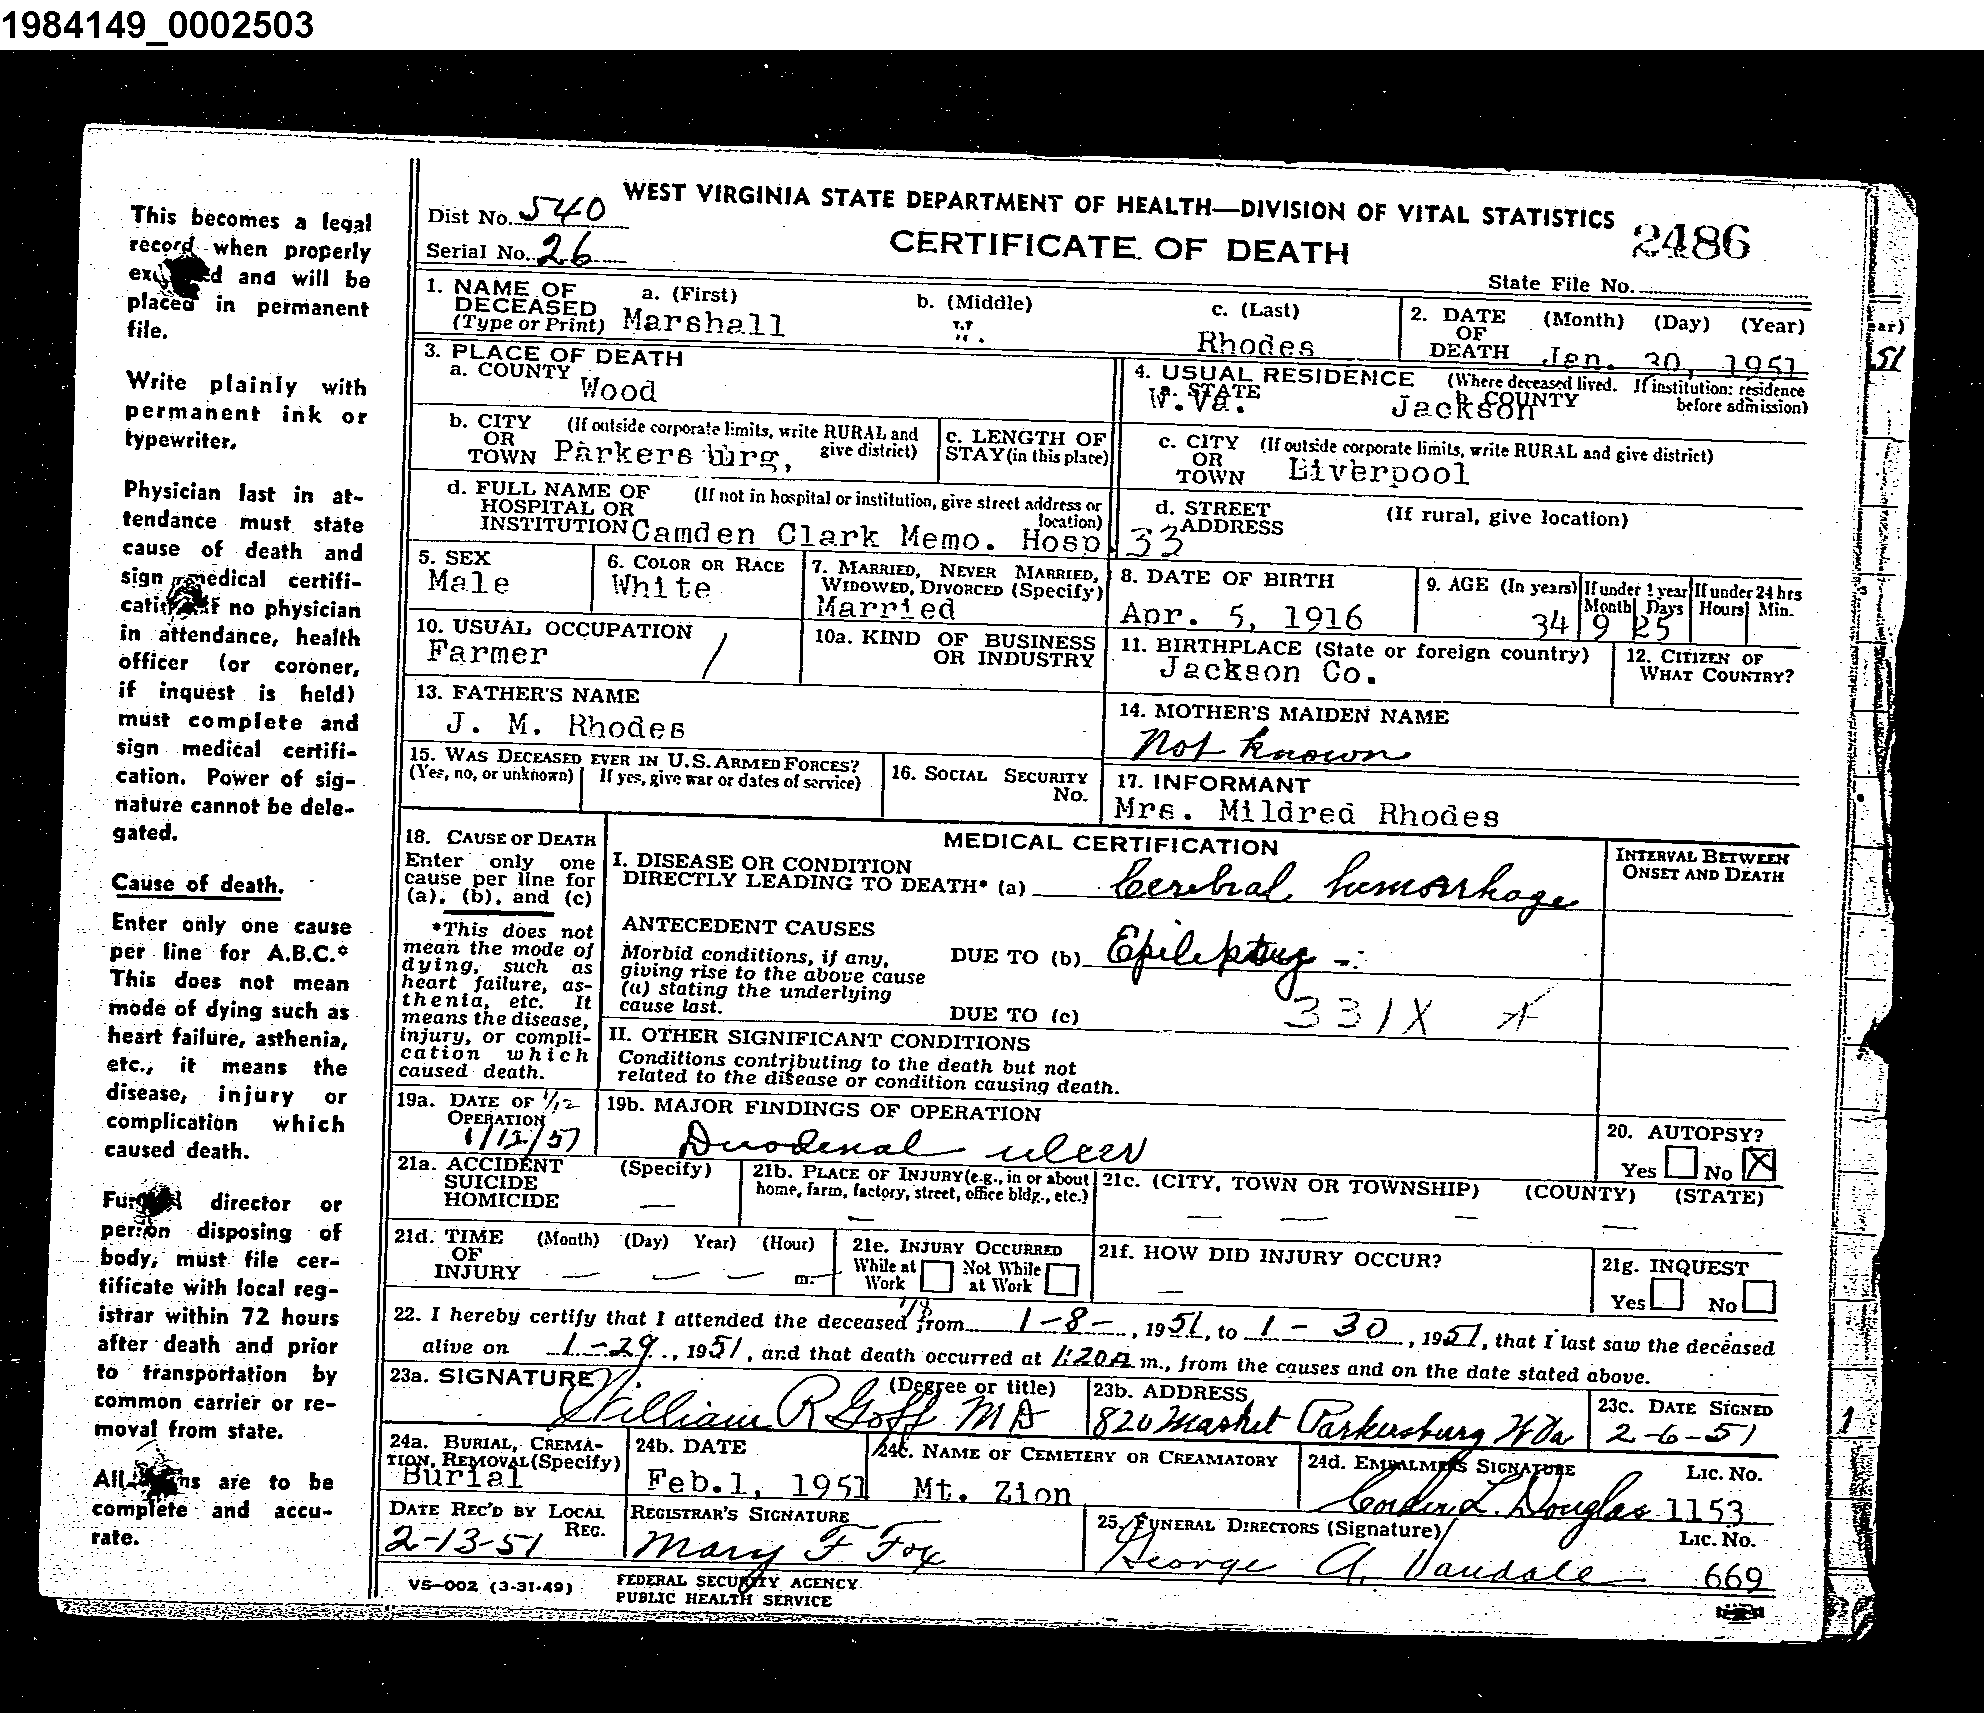 1984149_0002503
This becomes a legal
record when properly
and will be
placed in permanent
file.
Write plainly with
permanent ink or
typewriter.
Physician last in at-
tendance must state
cause of death and
sign medical certifi-
no physician
in attendance, health
officer (or coroner,
if inquest is held)
must complete and
sign medical certifi-
cation. Power of sig-
nature cannot be dele-
gated.
Cause of death.
Enter only one cause
per line for A.B.C.*
This does not mean
mode of dying such as
heart failure, asthenia,
etc., it means the
disease, injury or
complication which
caused death.
director or
person disposing of
body, must file cer-
tificate with local reg-
istrar within 72 hours
after death and prior
to transportation by
common carrier or re-
moval from state.
are to be
complete and accu-
rate.
WEST VIRGINIA STATE DEPARTMENT OF HEALTH—DIVISION OF VITAL STATISTICS
Dist No. 540
Serial No. 26
CERTIFICATE OF DEATH
2486
State File No.
1. NAME OF DECEASED (Type or Print)
a. (First) Marshall
b. (Middle)
c. (Last) Rhodes
2. DATE OF DEATH (Month) (Day) (Year)
Jan. 30, 1951
3. PLACE OF DEATH
a. COUNTY Wood
4. USUAL RESIDENCE (Where deceased lived. If institution: residence before admission)
a. STATE W.Va. b. COUNTY Jackson
b. CITY OR TOWN (If outside corporate limits, write RURAL and give district) Parkersburg,
c. LENGTH OF STAY (in this place)
c. CITY OR TOWN (If outside corporate limits, write RURAL and give district) Liverpool
d. FULL NAME OF HOSPITAL OR INSTITUTION (If not in hospital or institution, give street address or location) Camden Clark Memo. Hosp.
d. STREET ADDRESS (If rural, give location) 33
5. SEX Male
6. COLOR OR RACE White
7. MARRIED, NEVER MARRIED, WIDOWED, DIVORCED (Specify) Married
8. DATE OF BIRTH Apr. 5, 1916
9. AGE (In years) 34 If under 1 year Month 9 Days 25 If under 24 hrs Hours Min.
10. USUAL OCCUPATION Farmer /
10a. KIND OF BUSINESS OR INDUSTRY
11. BIRTHPLACE (State or foreign country) Jackson Co.
12. CITIZEN OF WHAT COUNTRY?
13. FATHER'S NAME
J. M. Rhodes
14. MOTHER'S MAIDEN NAME
Not known
15. WAS DECEASED EVER IN U.S. ARMED FORCES?
(Yes, no, or unknown) If yes, give war or dates of service)
16. SOCIAL SECURITY No.
17. INFORMANT
Mrs. Mildred Rhodes
18. CAUSE OF DEATH
Enter only one cause per line for (a), (b), and (c)
*This does not mean the mode of dying, such as heart failure, asthenia, etc. It means the disease, injury, or complication which caused death.
MEDICAL CERTIFICATION
INTERVAL BETWEEN ONSET AND DEATH
I. DISEASE OR CONDITION
DIRECTLY LEADING TO DEATH* (a) Cerebral hemorrhage
ANTECEDENT CAUSES
Morbid conditions, if any, giving rise to the above cause (a) stating the underlying cause last.
DUE TO (b) Epilepsy
DUE TO (c)
331X
II. OTHER SIGNIFICANT CONDITIONS
Conditions contributing to the death but not
related to the disease or condition causing death.
19a. DATE OF OPERATION 1/12
1/12/51
19b. MAJOR FINDINGS OF OPERATION
Duodenal ulcer
20. AUTOPSY?
Yes No X
21a. ACCIDENT SUICIDE HOMICIDE (Specify) —
21b. PLACE OF INJURY (e.g., in or about home, farm, factory, street, office bldg., etc.) —
21c. (CITY, TOWN OR TOWNSHIP) (COUNTY) (STATE)
— — — —
21d. TIME OF INJURY (Month) (Day) Year) (Hour) — — — — m.
21e. INJURY OCCURRED While at Work Not While at Work
21f. HOW DID INJURY OCCUR?
—
21g. INQUEST
Yes No
22. I hereby certify that I attended the deceased from 1-8-, 1951, to 1-30, 1951, that I last saw the deceased
alive on 1-29, 1951, and that death occurred at 1:20A m., from the causes and on the date stated above.
23a. SIGNATURE (Degree or title)
William R Goff MD
23b. ADDRESS
820 Market Parkersburg W Va
23c. DATE SIGNED
2-6-51
24a. BURIAL, CREMATION, REMOVAL (Specify) Burial
24b. DATE
Feb.1, 1951
24c. NAME OF CEMETERY OR CREAMATORY
Mt. Zion
24d. EMBALMERS SIGNATURE Lic. No.
L. Douglas 1153
DATE REC'D BY LOCAL REG.
2-13-51
REGISTRAR'S SIGNATURE
Mary F Fox
25. FUNERAL DIRECTORS (Signature) Lic. No.
George A. Vandale 669
VS-002 (3-31-49)
FEDERAL SECURITY AGENCY
PUBLIC HEALTH SERVICE
ar)
51
1